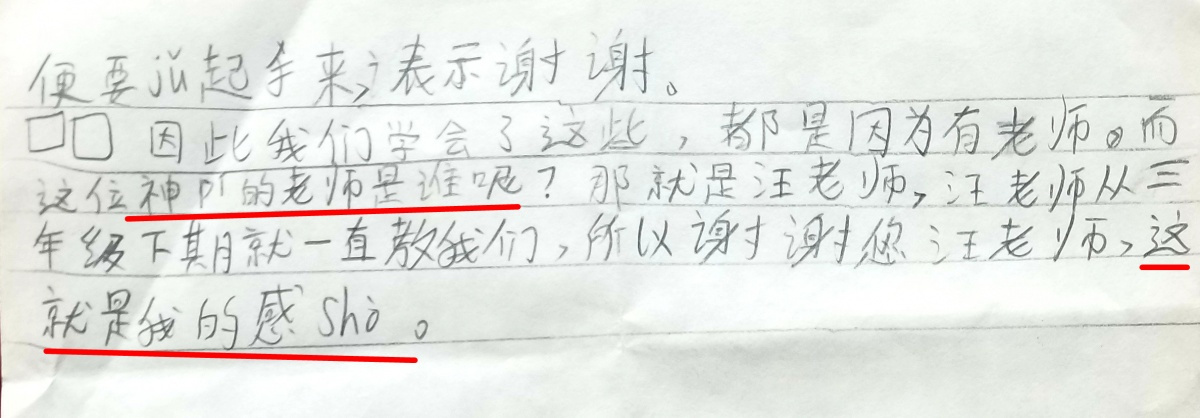 便要jǔ起手来，表示谢谢。
□□因此我们学会了这些，都是因为有老师。而
这位神的老师是谁呢？那就是汪老师，汪老师从三
年级下期就一直教我们，所以谢谢您汪老师，这
就是我的感shò。